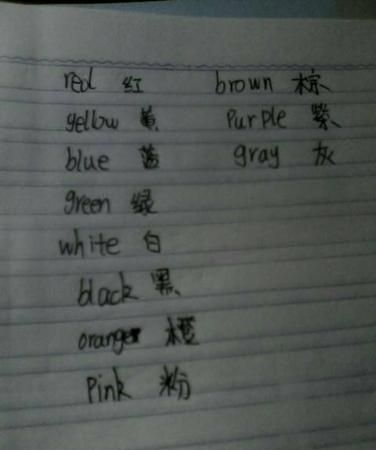 red 红 brown 棕
yellow 黄 purple 紫
blue 蓝 gray 灰
green 绿
white 白
black 黑
orange 橙
pink 粉